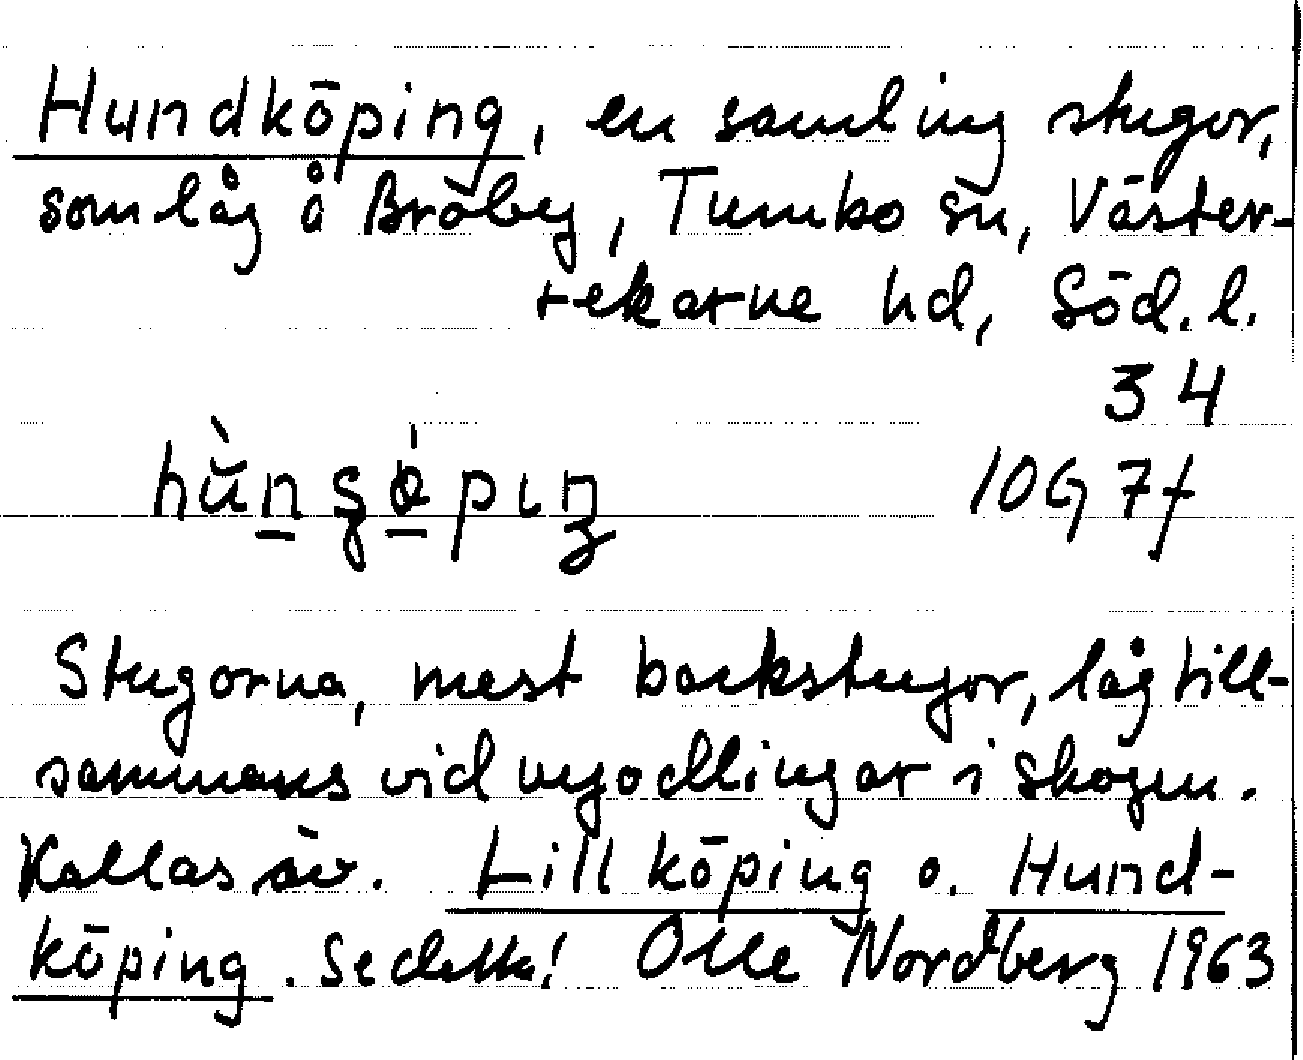 Hundköping, en samling stugor,
som låg å Bröby, Tumbo sn, Väster-
rekarne hd, Söd. l.
34
10G 7f
Stugorna, mest backstugor, låg till-
sammans vid nyodlingar i skogen.
Kallas äv. Lillköping o. Hund-
köping. Se detta! Olle Nordberg 1963